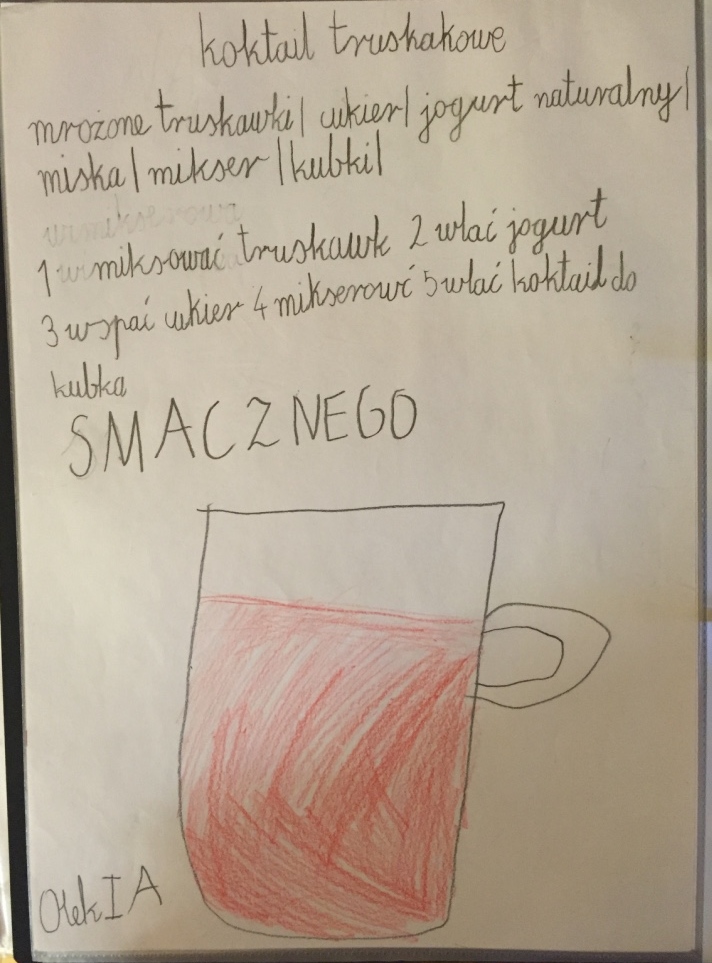 koktail truskakowe
mrożone truskawki| cukier| jogurt naturalny|
miska| mikser |kubki|
1 miksować truskawk 2 wlać jogurt
3 wspać cukier 4 mikserowć 5 wlać koktail do
kubka
SMACZNEGO
Olek I A